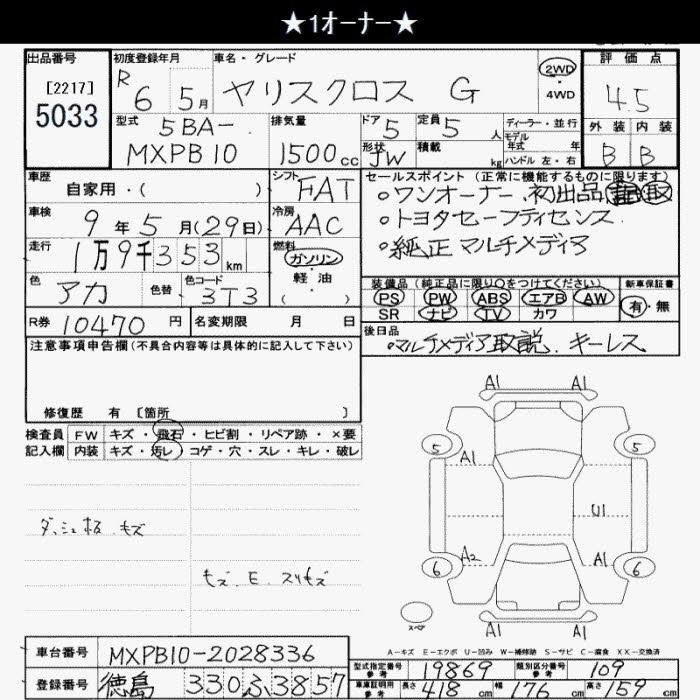 ★1オーナー★
出品番号
[2217]
5033
初度登録年月
R 6 5月
車名・グレード
ヤリスクロス G
2WD
・
4WD
評価点
4.5
外装 内装
B B
型式
5BA-
MXPB10
排気量
1500cc
ドア 5
形状 JW
定員 5 人
積載 kg
ディーラー・並行
モデル年式 年
ハンドル 左・右
車歴
自家用・( )
シフト
FAT
車検
9年5月(29日)
冷房
AAC
走行
1万9千353km
燃料
ガソリン
・
軽油
( )
色
アカ
色替
色コード
3T3
R券 10470円
名変期限 月 日
セールスポイント (正常に機能するものに限ります)
○ワンオーナー 初出品
○トヨタセーフティセンス
○純正マルチメディア
装備品 (純正品に限り○をつけてください)
PS PW ABS エアB AW
SR ナビ TV カワ
新車保証書
有・無
後日品
○マルチメディア取説 キーレス
注意事項申告欄(不具合内容等は具体的に記入して下さい)
修復歴 有 〔箇所 〕
検査員記入欄
FW キズ・飛石・ヒビ割・リペア跡・×要
内装 キズ・汚レ・コゲ・穴・スレ・キレ・破レ
ダッシュ板 キズ
モズ.E.スリキズ
A1 A1
5 5
A1
U1
A2 A1
6 6
スペア
A1 A1
A-キズ E-エクボ U-凹み W-補修跡 S-サビ C-腐食 XX-交換済
車台番号 MXPB10-2028336
登録番号 徳島 330 ふ 3857
型式指定番号 参考 19869
類別区分番号 参考 109
車庫証明用 参考 長さ 418cm 幅 176cm 高さ 159cm